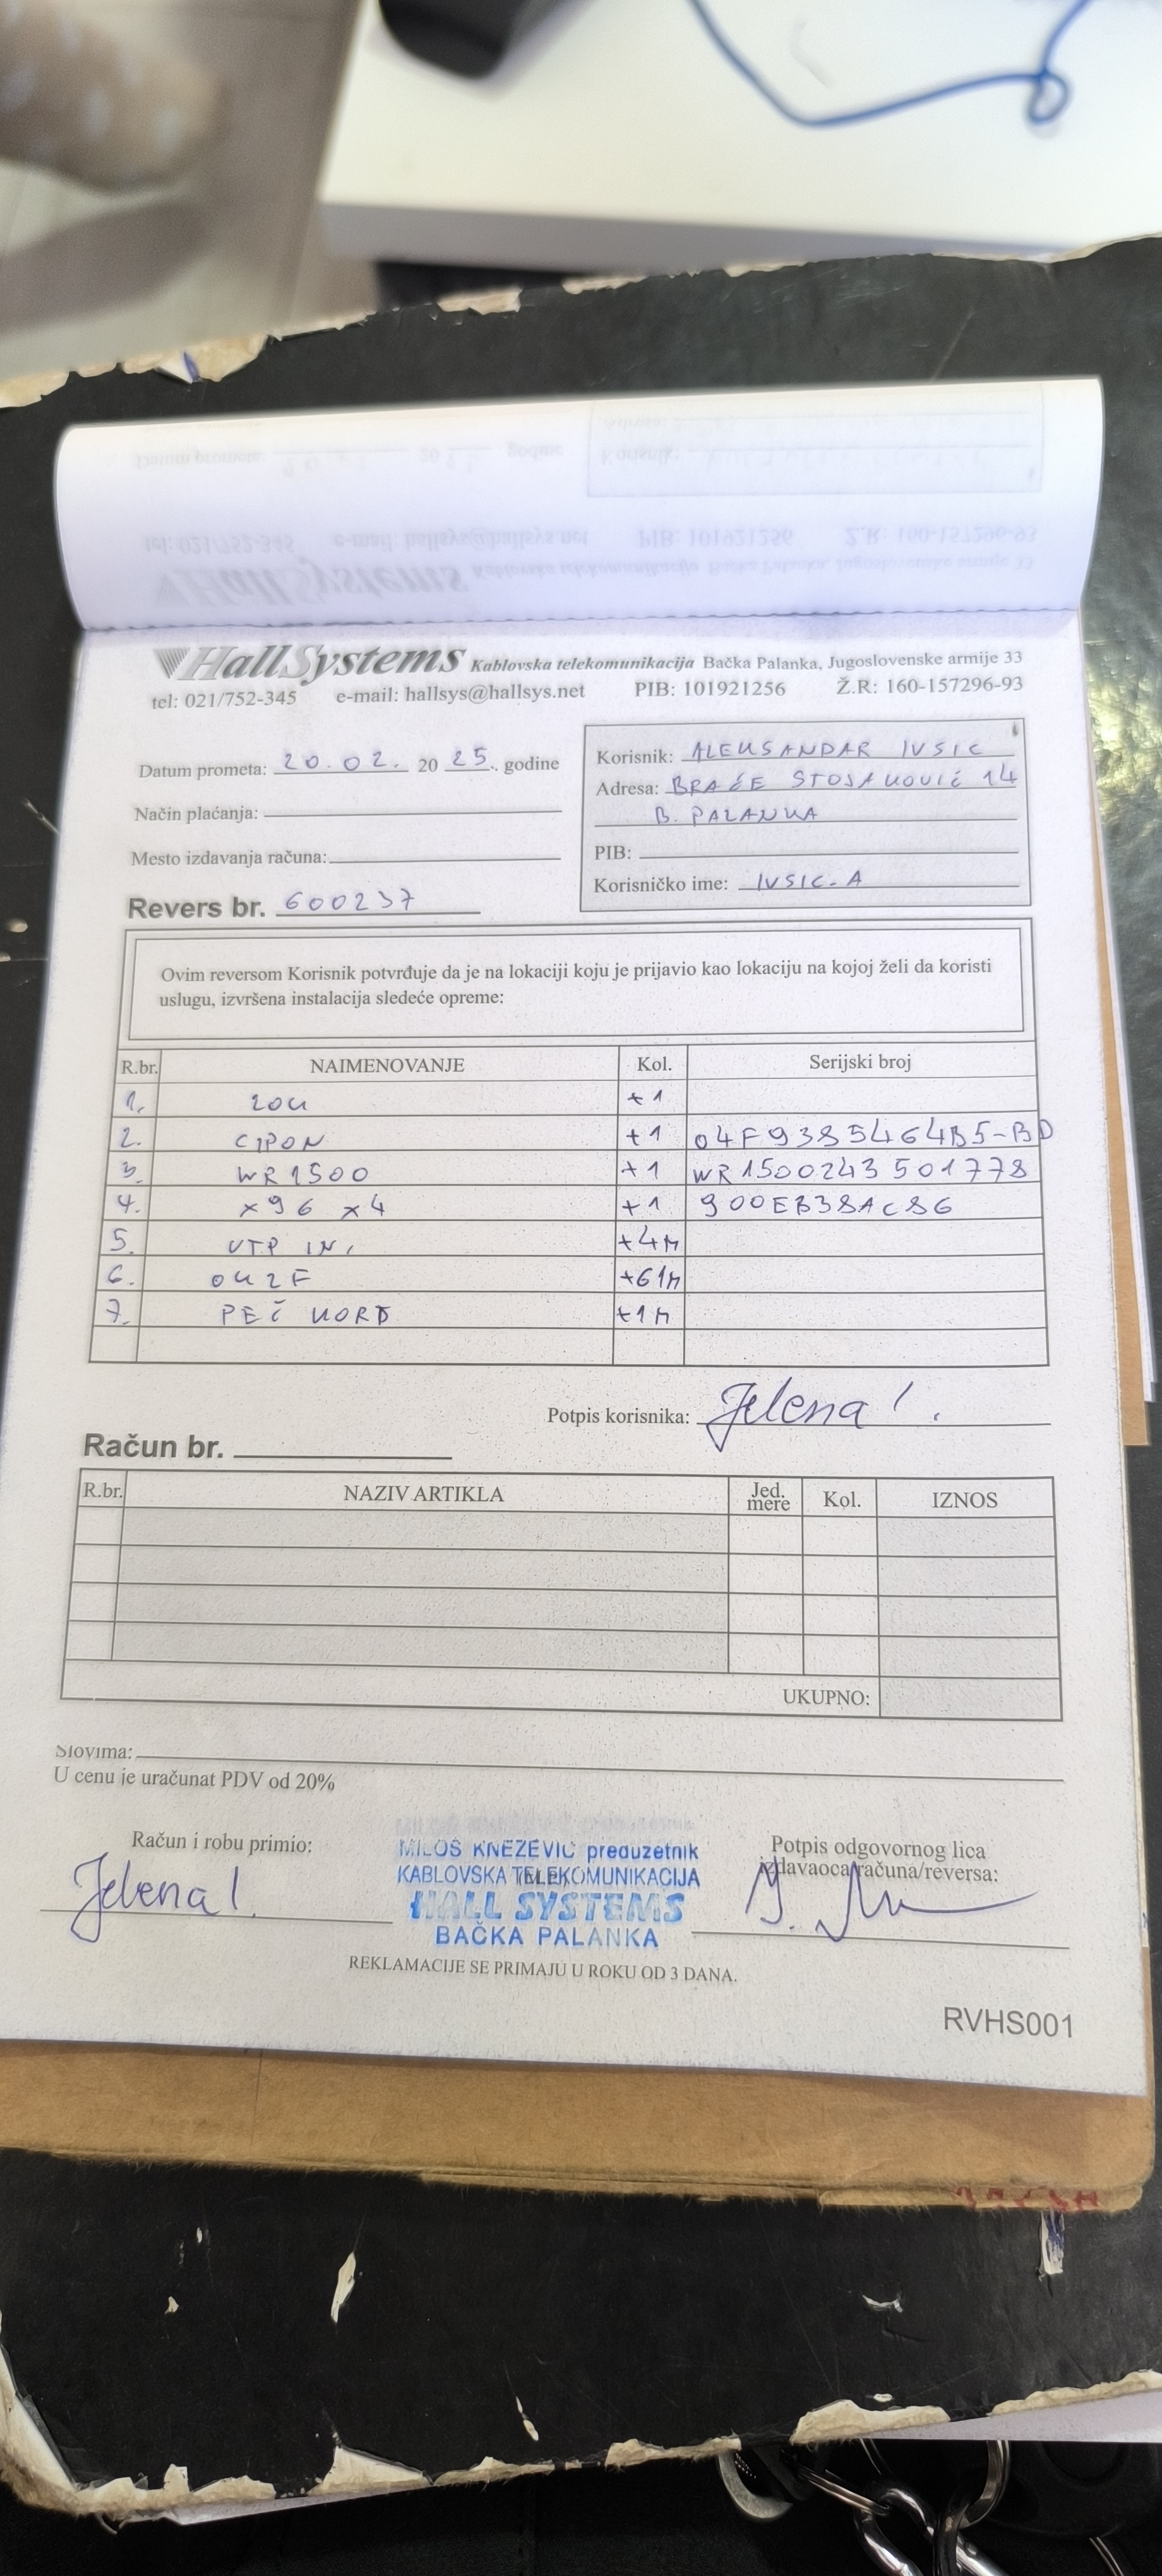 HallSystems Kablovska telekomunikacija Bačka Palanka, Jugoslovenske armije 33
tel: 021/752-345 e-mail: hallsys@hallsys.net PIB: 101921256 Ž.R: 160-157296-93
Datum prometa: 20.02. 20 25. godine
Način plaćanja:
Mesto izdavanja računa:
Revers br. 600237
Korisnik: ALEKSANDAR IVSIC
Adresa: BRAĆE STOJANOVIĆ 14
B. PALANKA
PIB:
Korisničko ime: IVSIC.A
Ovim reversom Korisnik potvrđuje da je na lokaciji koju je prijavio kao lokaciju na kojoj želi da koristi
uslugu, izvršena instalacija sledeće opreme:
R.br. NAIMENOVANJE Kol. Serijski broj
1. ZOK +1
2. CIPON +1 04F9385464B5-BD
3. WR1500 +1 WR1500243501778
4. X96 X4 +1 900EB38AC86
5. UTP IN. +4M
6. OK2F +61M
7. PEČ KORD +1M
Potpis korisnika: Jelena I.
Račun br.
R.br. NAZIV ARTIKLA Jed. mere Kol. IZNOS
UKUPNO:
Slovima:
U cenu je uračunat PDV od 20%
Račun i robu primio:
Jelena I.
MILOŠ KNEŽEVIĆ preduzetnik
KABLOVSKA TELEKOMUNIKACIJA
HALL SYSTEMS
BAČKA PALANKA
Potpis odgovornog lica
izdavaoca računa/reversa:
REKLAMACIJE SE PRIMAJU U ROKU OD 3 DANA.
RVHS001